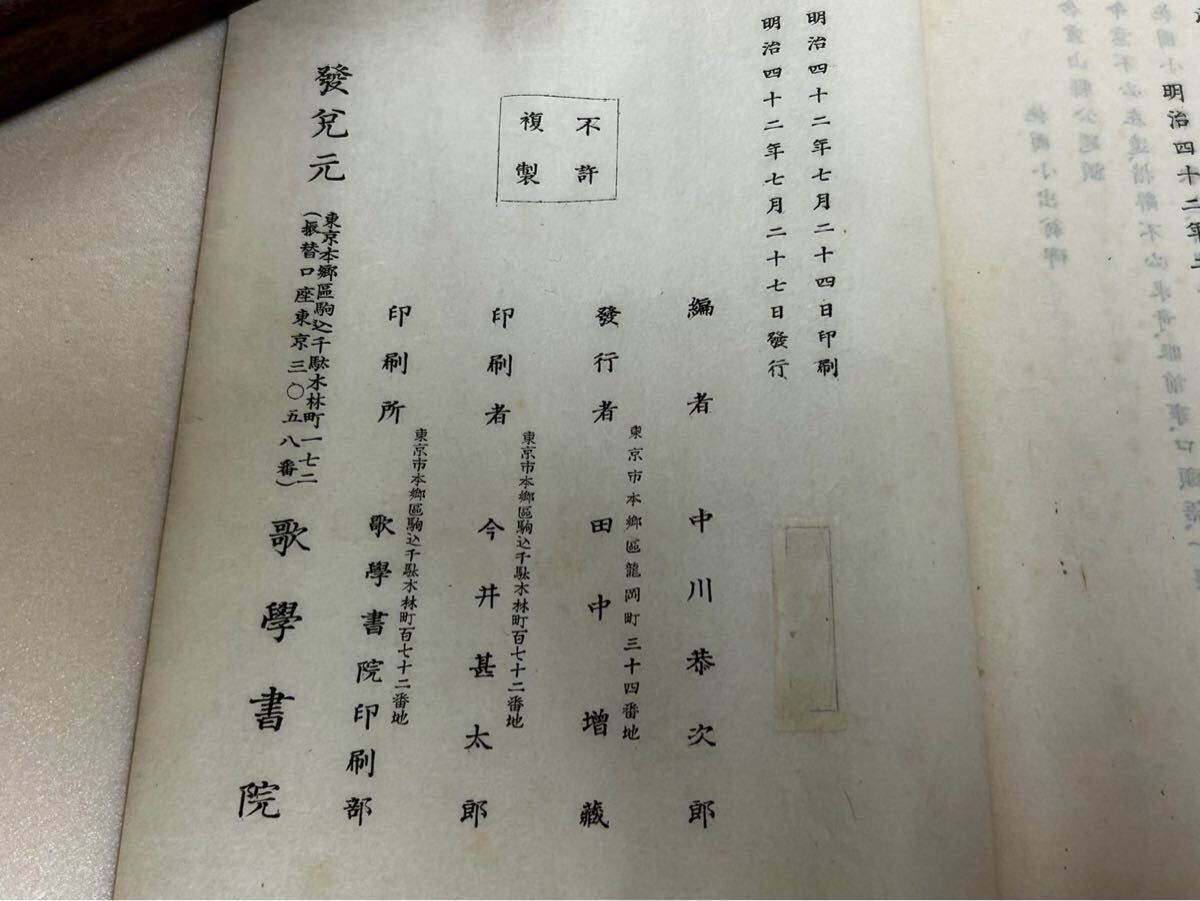 明治四十二年七月二十四日印刷
明治四十二年七月二十七日發行
不許
複製
編者 中川恭次郎
發行者 東京市本郷區龍岡町三十四番地 田中増藏
印刷者 東京市本郷區駒込千駄木林町百七十二番地 今井甚太郎
印刷所 東京市本郷區駒込千駄木林町百七十二番地 歌學書院印刷部
發兌元 東京本郷區駒込千駄木林町一七二
(振替口座東京三〇五八番) 歌學書院
明治四十二年